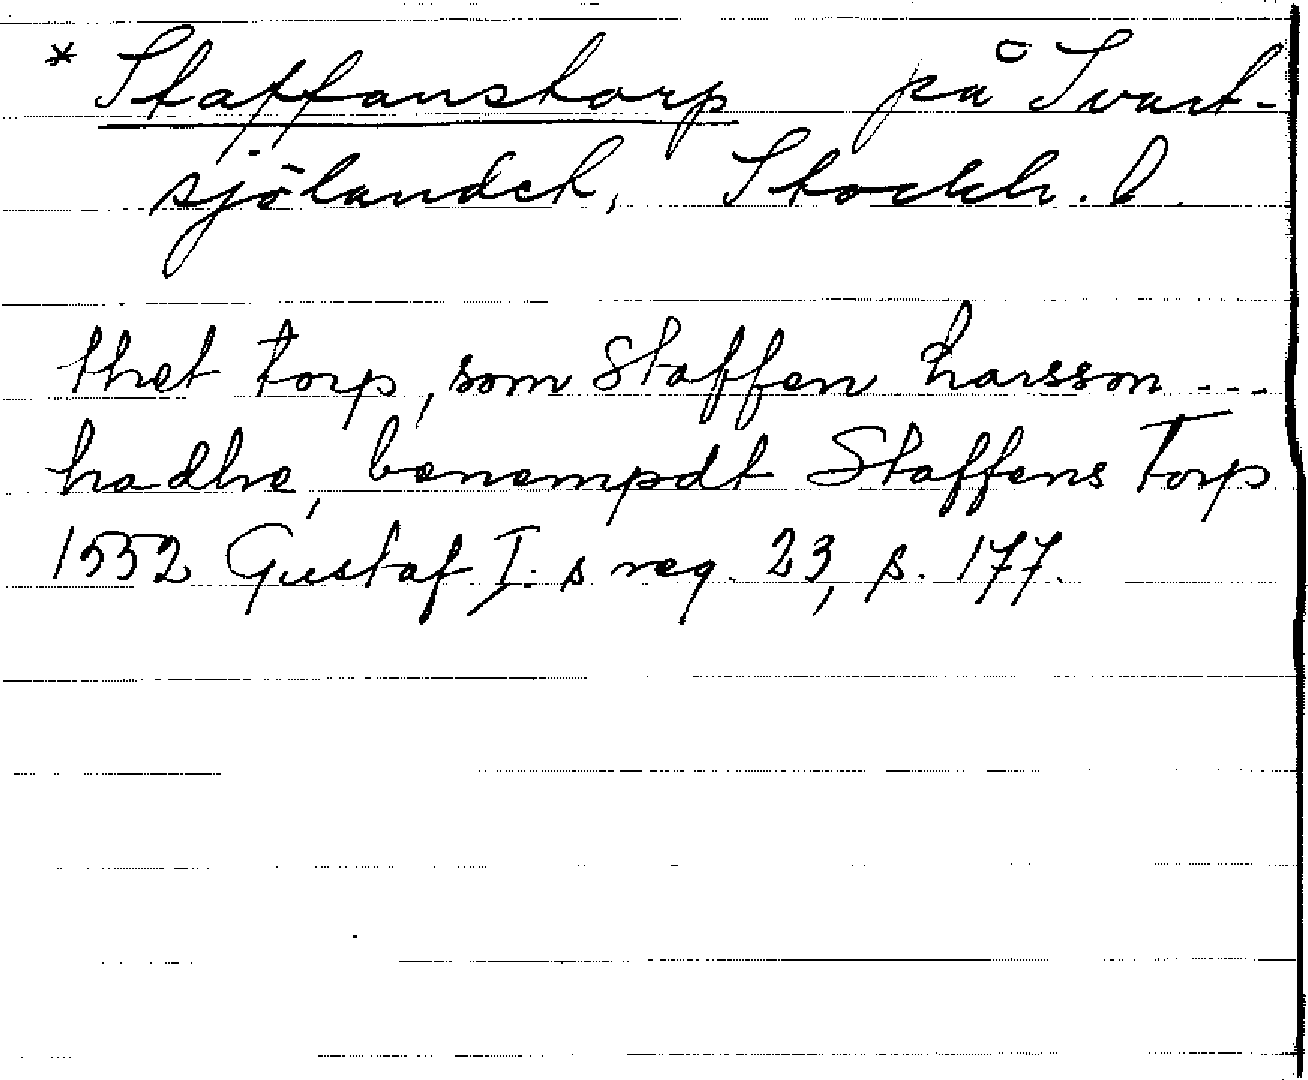 * Staffanstorp på Svart-
sjölandet, Stockh. l.
thet torp, som Staffen Larsson ---
hadhe, benempdt Staffens Torp
1552 Gustaf I:s reg. 23, s. 177.